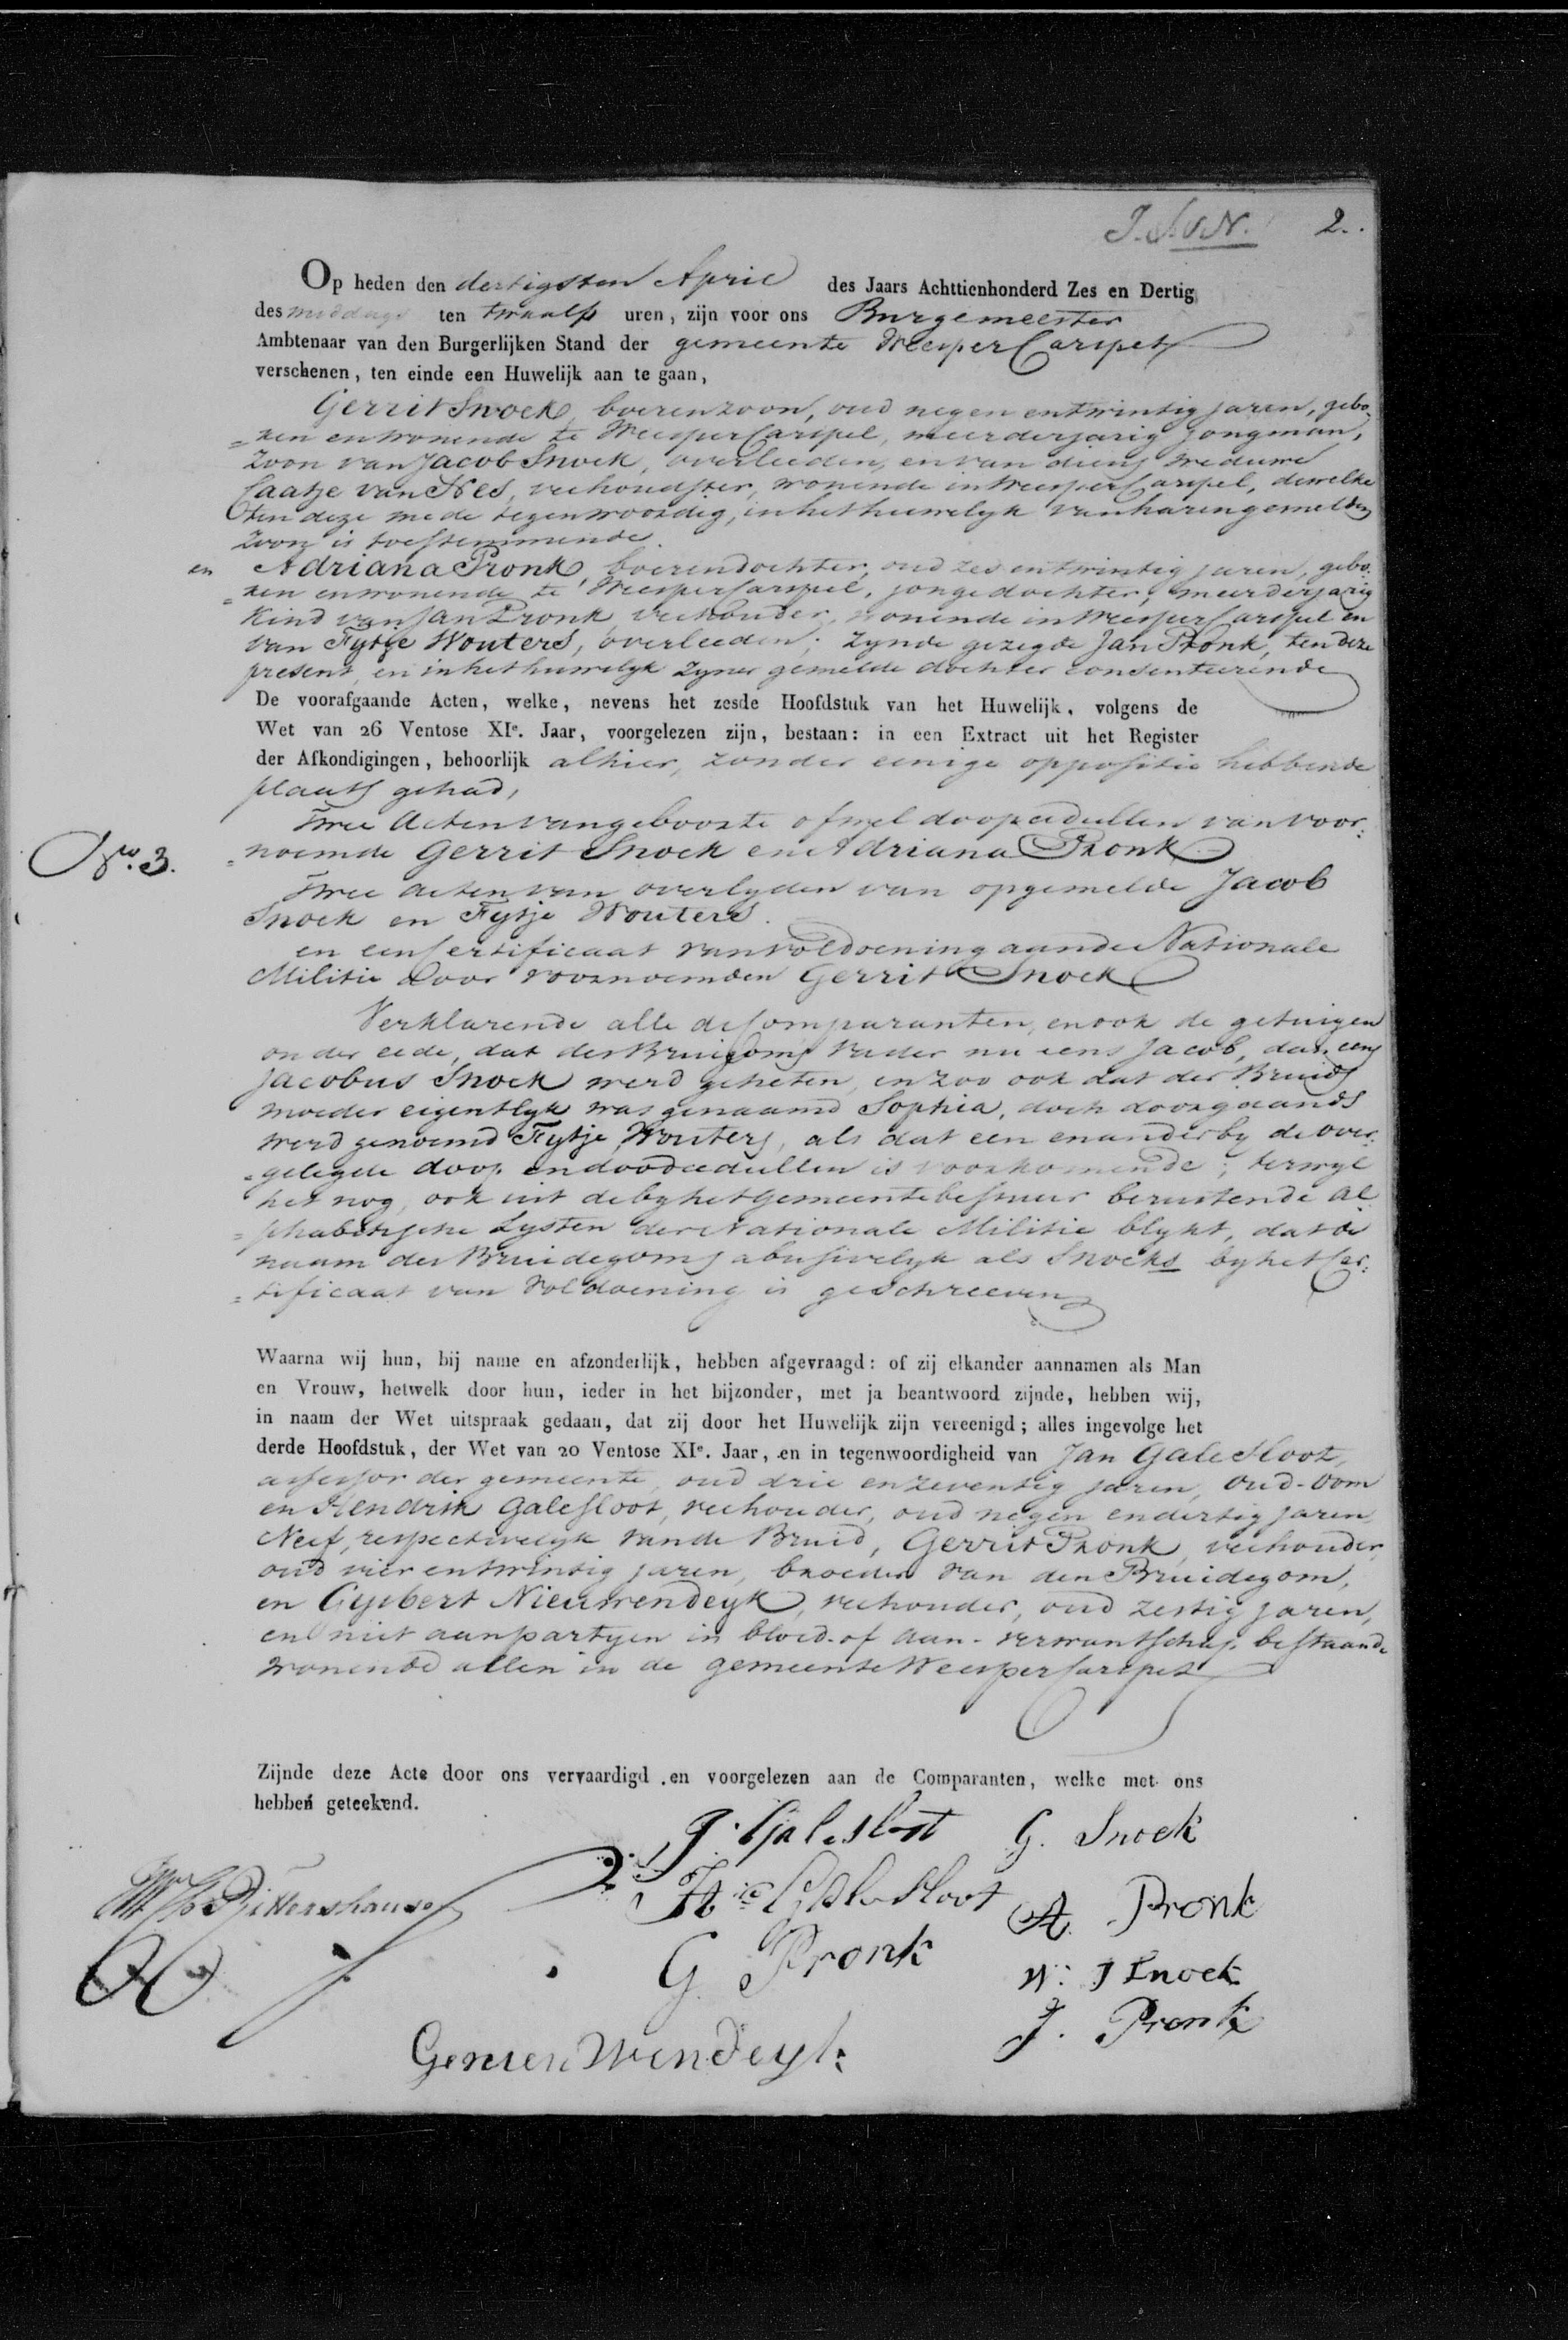 J.S.v.N. 2.
Op heden den dertigsten April des Jaars Achttienhonderd Zes en Dertig
des middags ten twaalf uren, zijn voor ons Burgemeester
Ambtenaar van den Burgerlijken Stand der gemeente WeesperCarspel
verschenen, ten einde een Huwelijk aan te gaan,
Gerrit Snoek, boerenzoon, oud negen entwintig jaren, gebo-
=ren enwonende te WeesperCarspel, meerderjarig jongman,
Zoon van Jacob Snoek, overleeden, en van diens weduwe
Caatje van Nes, veehoudster, wonende in WeesperCarspel, dewelke
ten deze mede tegenwoordig, in het huwelyk van haren gemelden
Zoon is toestemmende.
en Adriana Pronk, boerendochter, oud zes entwintig jaren, gebo:
=ren enwonende te WeesperCarspel, jongedochter, meerderjarig
Kind van Jan Pronk, veehouder, wonende in WeesperCarspel en
van Fytje Wouters, overleeden; zynde gezegde Jan Pronk, ten deze
present, en in het huwelyk zyner gemelde dochter consenteerende
De voorafgaande Acten, welke, nevens het zesde Hoofdstuk van het Huwelijk, volgens de
Wet van 26 Ventose XIe. Jaar, voorgelezen zijn, bestaan: in een Extract uit het Register
der Afkondigingen, behoorlijk alhier, zonder eenige oppositie hebbende
plaats gehad,
Twee Acten van geboorte ofwel doopcedullen van voor:
No. 3.
=noemde Gerrit Snoek en Adriana Pronk
Twee acten van overlyden van opgemelde Jacob
Snoek en Fytje Wouters.
en een Certificaat van voldoening aan de Nationale
Militie door voornoemden Gerrit Snoek
Verklarende alle de Comparanten, en ook de getuigen
onder eede, dat des Bruigoms vader nu eens Jacob, dan eens
Jacobus Snoek werd geheten, en zoo ook dat der Bruids
moeder eigentlyk was genaamd Sophia, doch doorgaands
werd genoemd Fytje Wouters, als dat een en ander by de over:
=gelegde doop en doodcedullen is voorkomende; terwyl
het nog, ook uit de by het Gemeentebestuur berustende al
=phabetische Lysten der Nationale Militie blykt, dat de
naam des Bruidegoms abusivelyk als Snoeks by het Cer:
=tificaat van Voldoening is geschreeven
Waarna wij hun, bij name en afzonderlijk, hebben afgevraagd: of zij elkander aannamen als Man
en Vrouw, hetwelk door hun, ieder in het bijzonder, met ja beantwoord zijnde, hebben wij,
in naam der Wet uitspraak gedaan, dat zij door het Huwelijk zijn vereenigd; alles ingevolge het
derde Hoofdstuk, der Wet van 20 Ventose XIe. Jaar, en in tegenwoordigheid van Jan Galesloot,
assessor der gemeente, oud drie enzeventig jaren, oud-oom
en Hendrik Galesloot, veehouder, oud negen endertig jaren,
Neef, respectivelyk van de Bruid, Gerrit Pronk, veehouder,
oud vier entwintig jaren, broeder van den Bruidegom,
en Gysbert Nieuwendeyk, veehouder, oud zestig jaren,
en niet aan partyen in bloed- of aan-verwantschap bestaande
wonende allen in de gemeente WeesperCarspel
Zijnde deze Acte door ons vervaardigd en voorgelezen aan de Comparanten, welke met ons
hebben geteekend.
J. Galesloot G. Snoek
Hk Galesloot A. Pronk
G. Pronk J Snoek
J. Pronk